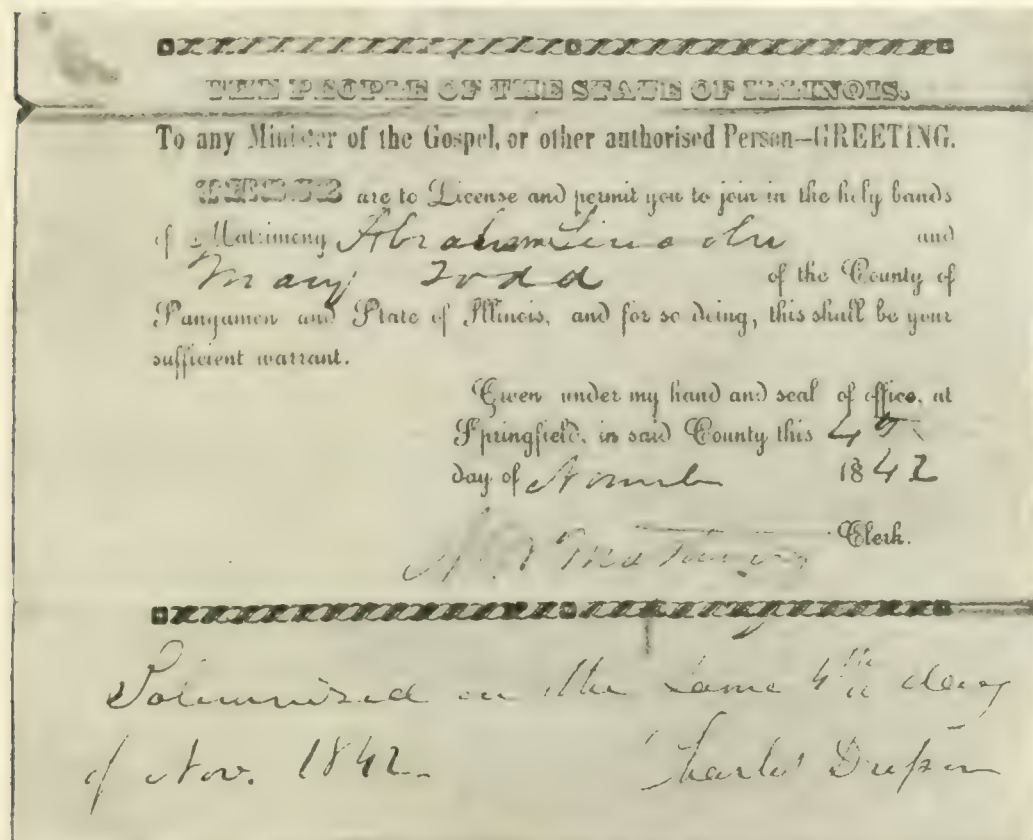 THE PEOPLE OF THE STATE OF ILLINOIS.
To any Minister of the Gospel, or other authorised Person--GREETING.
THESE are to License and permit you to join in the holy bands
of Matrimony Abraham Lincoln and
Mary Todd of the County of
Sangamon and State of Illinois, and for so doing, this shall be your
sufficient warrant.
Given under my hand and seal of office, at
Springfield, in said County this 4th
day of 1842
Clerk.
Solemnized on the same 4th day
of Nov. 1842. Charles Dresser